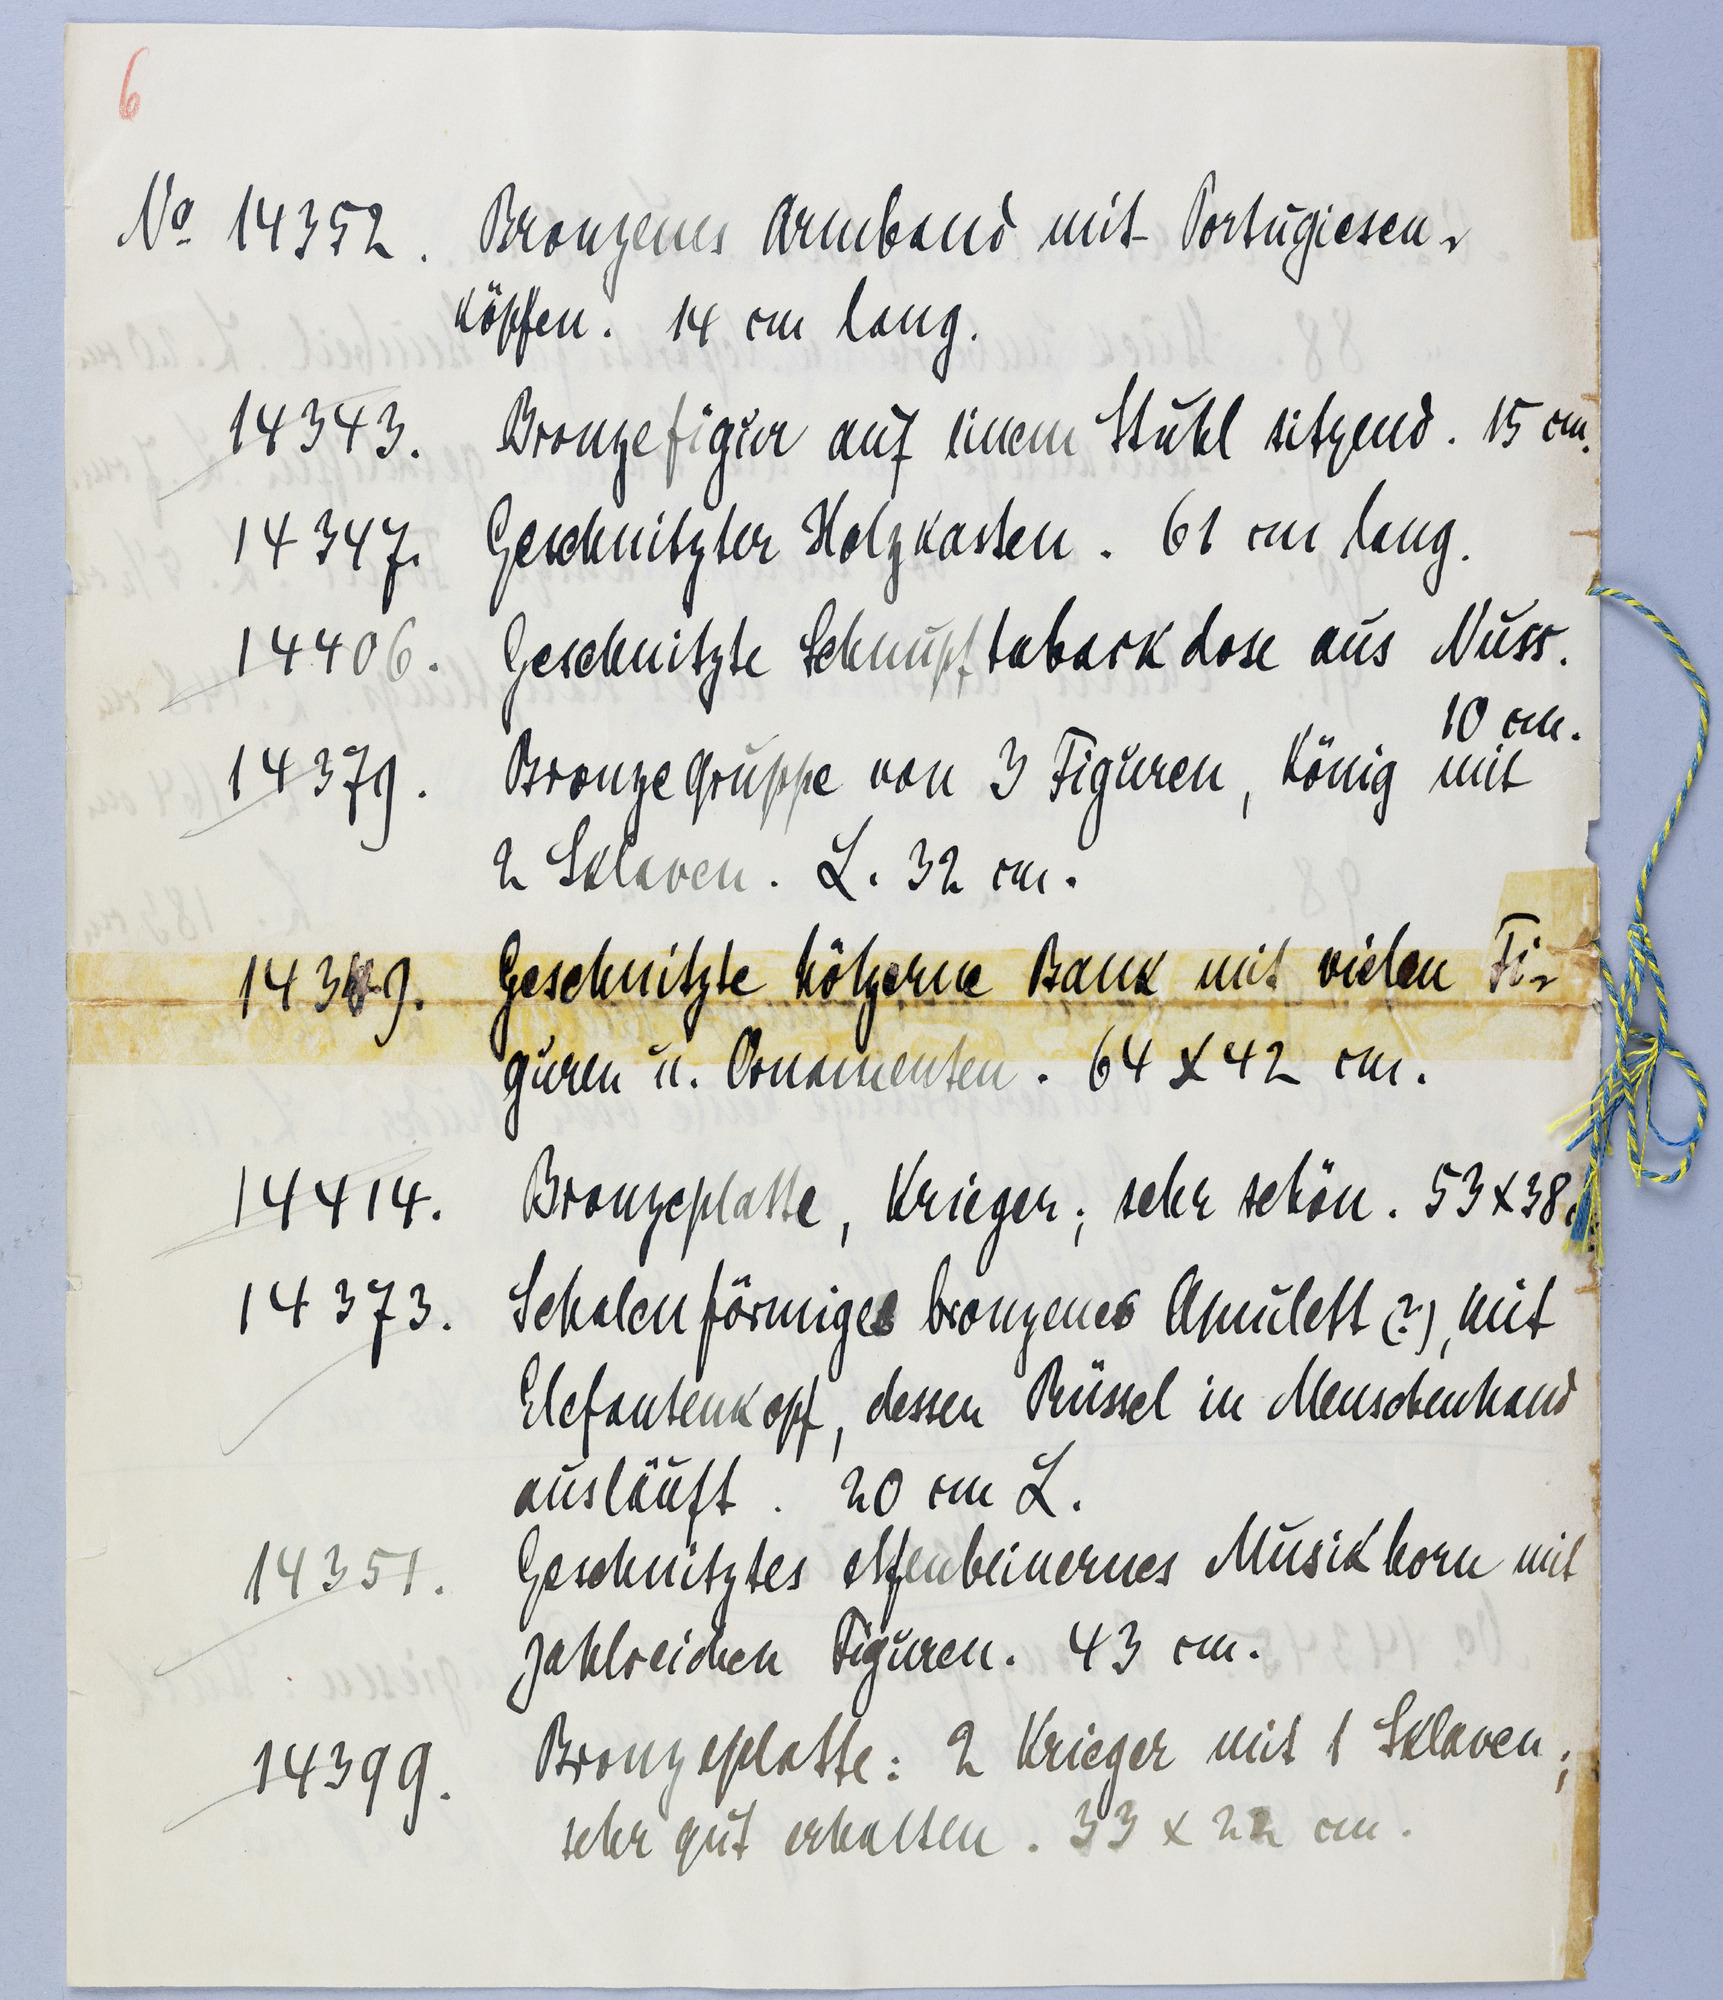 6
No 14352. Bronzenes Armband mit Portugiesen-
köpfen. 14 cm lang.
14343. Bronzefigur auf einem Stuhl sitzend. 15 cm.
14347. Geschnitzter Holzkasten. 61 cm lang.
14406. Geschnitzte Schnupftabackdose aus Nuss.
10 cm.
14379. Bronzegruppe von 3 Figuren, König mit
2 Sklaven. L. 32 cm.
Geschnitzte hölzerne Bank mit vielen Fi-
guren u. Ornamenten. 64 x 42 cm.
14414. Bronzeplatte, Krieger; sehr schön. 53 x 38.
14373. Schalenförmiges bronzenes Amulett (?), mit
Elefantenkopf, dessen Rüssel in Menschenhand
ausläuft. 20 cm L.
14351. Geschnitztes elfenbeinernes Musikhorn mit
zahlreichen Figuren. 43 cm.
14399. Bronzeplatte: 2 Krieger mit 1 Sklaven;
sehr gut erhalten. 33 x 22 cm.